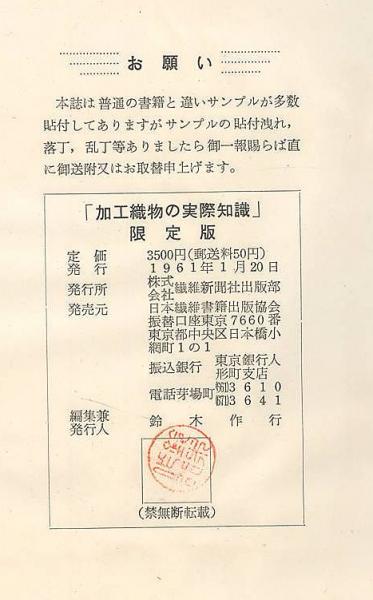 お願い
本誌は普通の書籍と違いサンプルが多数
貼付してありますがサンプルの貼付洩れ，
落丁，乱丁等ありましたら御一報賜らば直
に御送附又はお取替申上げます。
「加工織物の実際知識」
限定版
定価 3500円(郵送料50円)
発行 1961年1月20日
発行所 株式会社繊維新聞社出版部
発売元 日本繊維書籍出版協会
振替口座東京7660番
東京都中央区日本橋小
網町1の1
振込銀行 東京銀行人形町支店
電話茅場町 3610
3641
編集兼発行人 鈴木作行
(禁無断転載)